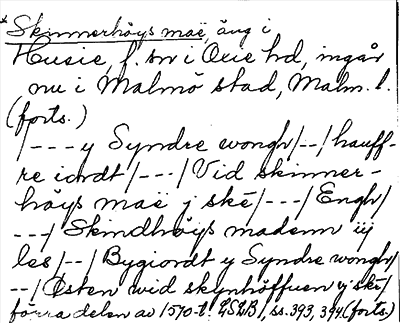 *Skinnerhöys maë, äng i
Husie, f. sn i Oxie hd, ingår
nu i Malmö stad, Malm. l.
(forts.)
/---y Syndre wongh/--/hauff-
re iordt/---/Vid skinner-
höys maë j ské/---/Engh/
---/Skindhöys madenn iij
les/--/Bygiordt y Syndre wongh/
--/Østen wid skynhöffuen y ské/
förra delen av 1570-t. LSLB1, ss. 393, 394. (forts.)